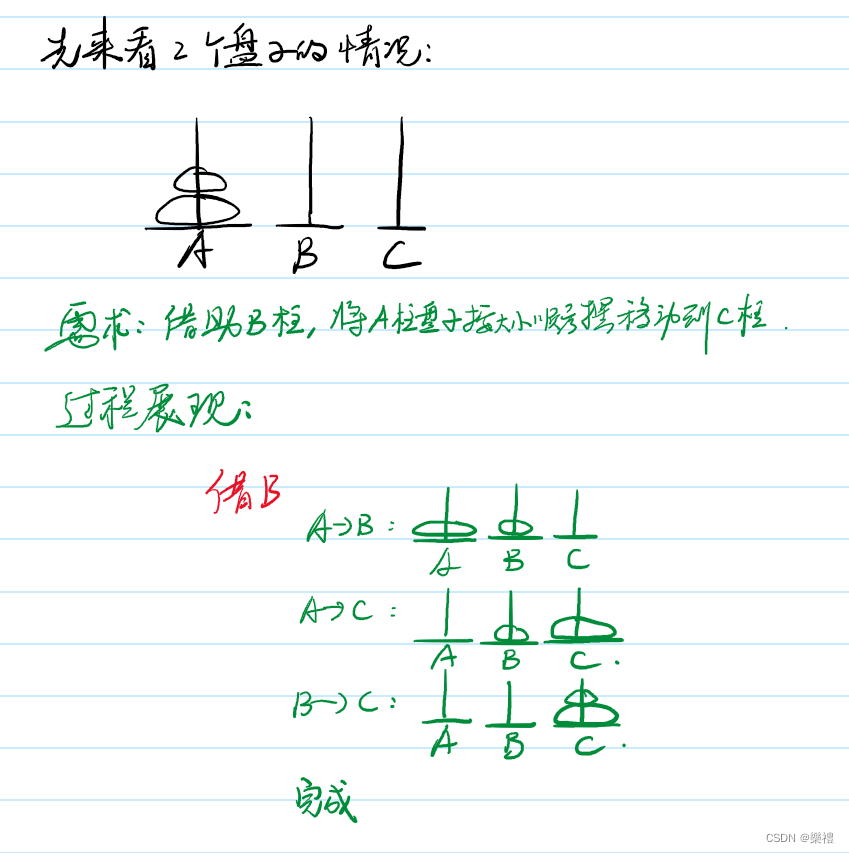 先来看2个盘子的情况:
A B C
需求: 借助B柱, 将A柱盘子按大小顺序摆移动到C柱.
过程展现:
借B
A→B:
A B C
A→C:
A B C.
B→C:
A B C.
完成
CSDN @樂禮